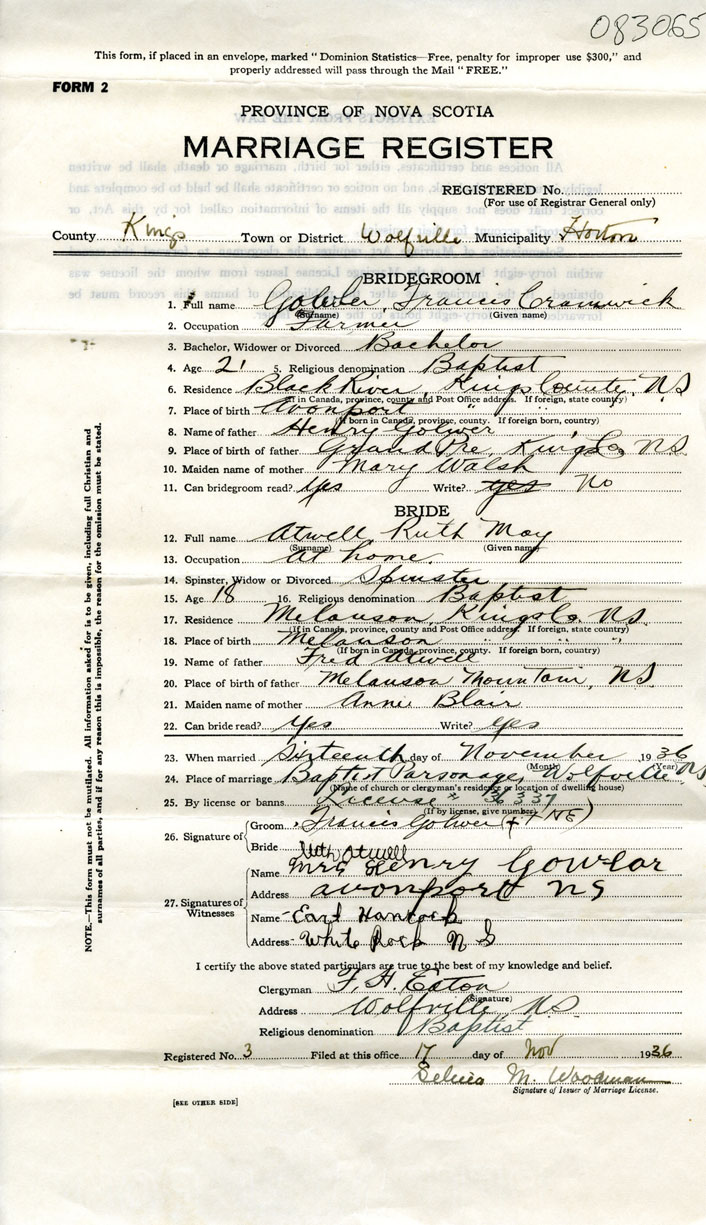 083065
This form, if placed in an envelope, marked "Dominion Statistics—Free, penalty for improper use $300," and
properly addressed will pass through the Mail "FREE."
FORM 2
PROVINCE OF NOVA SCOTIA
MARRIAGE REGISTER
REGISTERED No.
(For use of Registrar General only)
County Kings Town or District Wolfville Municipality Horton
BRIDEGROOM
1. Full name Golwer, Francis Cranwick
(Surname) (Given name)
2. Occupation Farmer
3. Bachelor, Widower or Divorced Bachelor
4. Age 21 5. Religious denomination Baptist
6. Residence Black River, Kings County, N.S
(If in Canada, province, county and Post Office address. If foreign, state country)
7. Place of birth Avonport " " "
(If born in Canada, province, county. If foreign born, country)
8. Name of father Henry Golwer
9. Place of birth of father Grand Pre, Kings Co, N.S.
10. Maiden name of mother Mary Walsh
11. Can bridegroom read? Yes Write? yes No
BRIDE
12. Full name Atwell Ruth May
(Surname) (Given name)
13. Occupation At home.
14. Spinster, Widow or Divorced Spinster
15. Age 18 16. Religious denomination Baptist
17. Residence Melanson, Kings Co. N.S.
(If in Canada, province, county and Post Office address. If foreign, state country)
18. Place of birth Melanson " " "
(If born in Canada, province, county. If foreign born, country)
19. Name of father Fred Atwell
20. Place of birth of father Melanson Mountain, N.S.
21. Maiden name of mother Annie Blair
22. Can bride read? Yes Write? Yes
23. When married Sixteenth day of November 1936
(Month) (Year)
24. Place of marriage Baptist Parsonage, Wolfville N.S
(Name of church or clergyman's residence or location of dwelling house)
25. By license or banns License # 36339
(If by license, give number)
26. Signature of
Groom Francis Golwer
Bride Ruth Atwell
27. Signatures of Witnesses
Name Mrs Henry Gowlar
Address avonport NS
Name Earl Hancock
Address White Rock N S
I certify the above stated particulars are true to the best of my knowledge and belief.
Clergyman F. H. Eaton
(Signature)
Address Wolfville NS
Religious denomination Baptist
Registered No. 3 Filed at this office 17 day of Nov 1936
M. Woodman
Signature of Issuer of Marriage License.
[SEE OTHER SIDE]
NOTE.—This form must not be mutilated. All information asked for is to be given, including full Christian and
surnames of all parties, and if for any reason this is impossible, the reason for the omission must be stated.